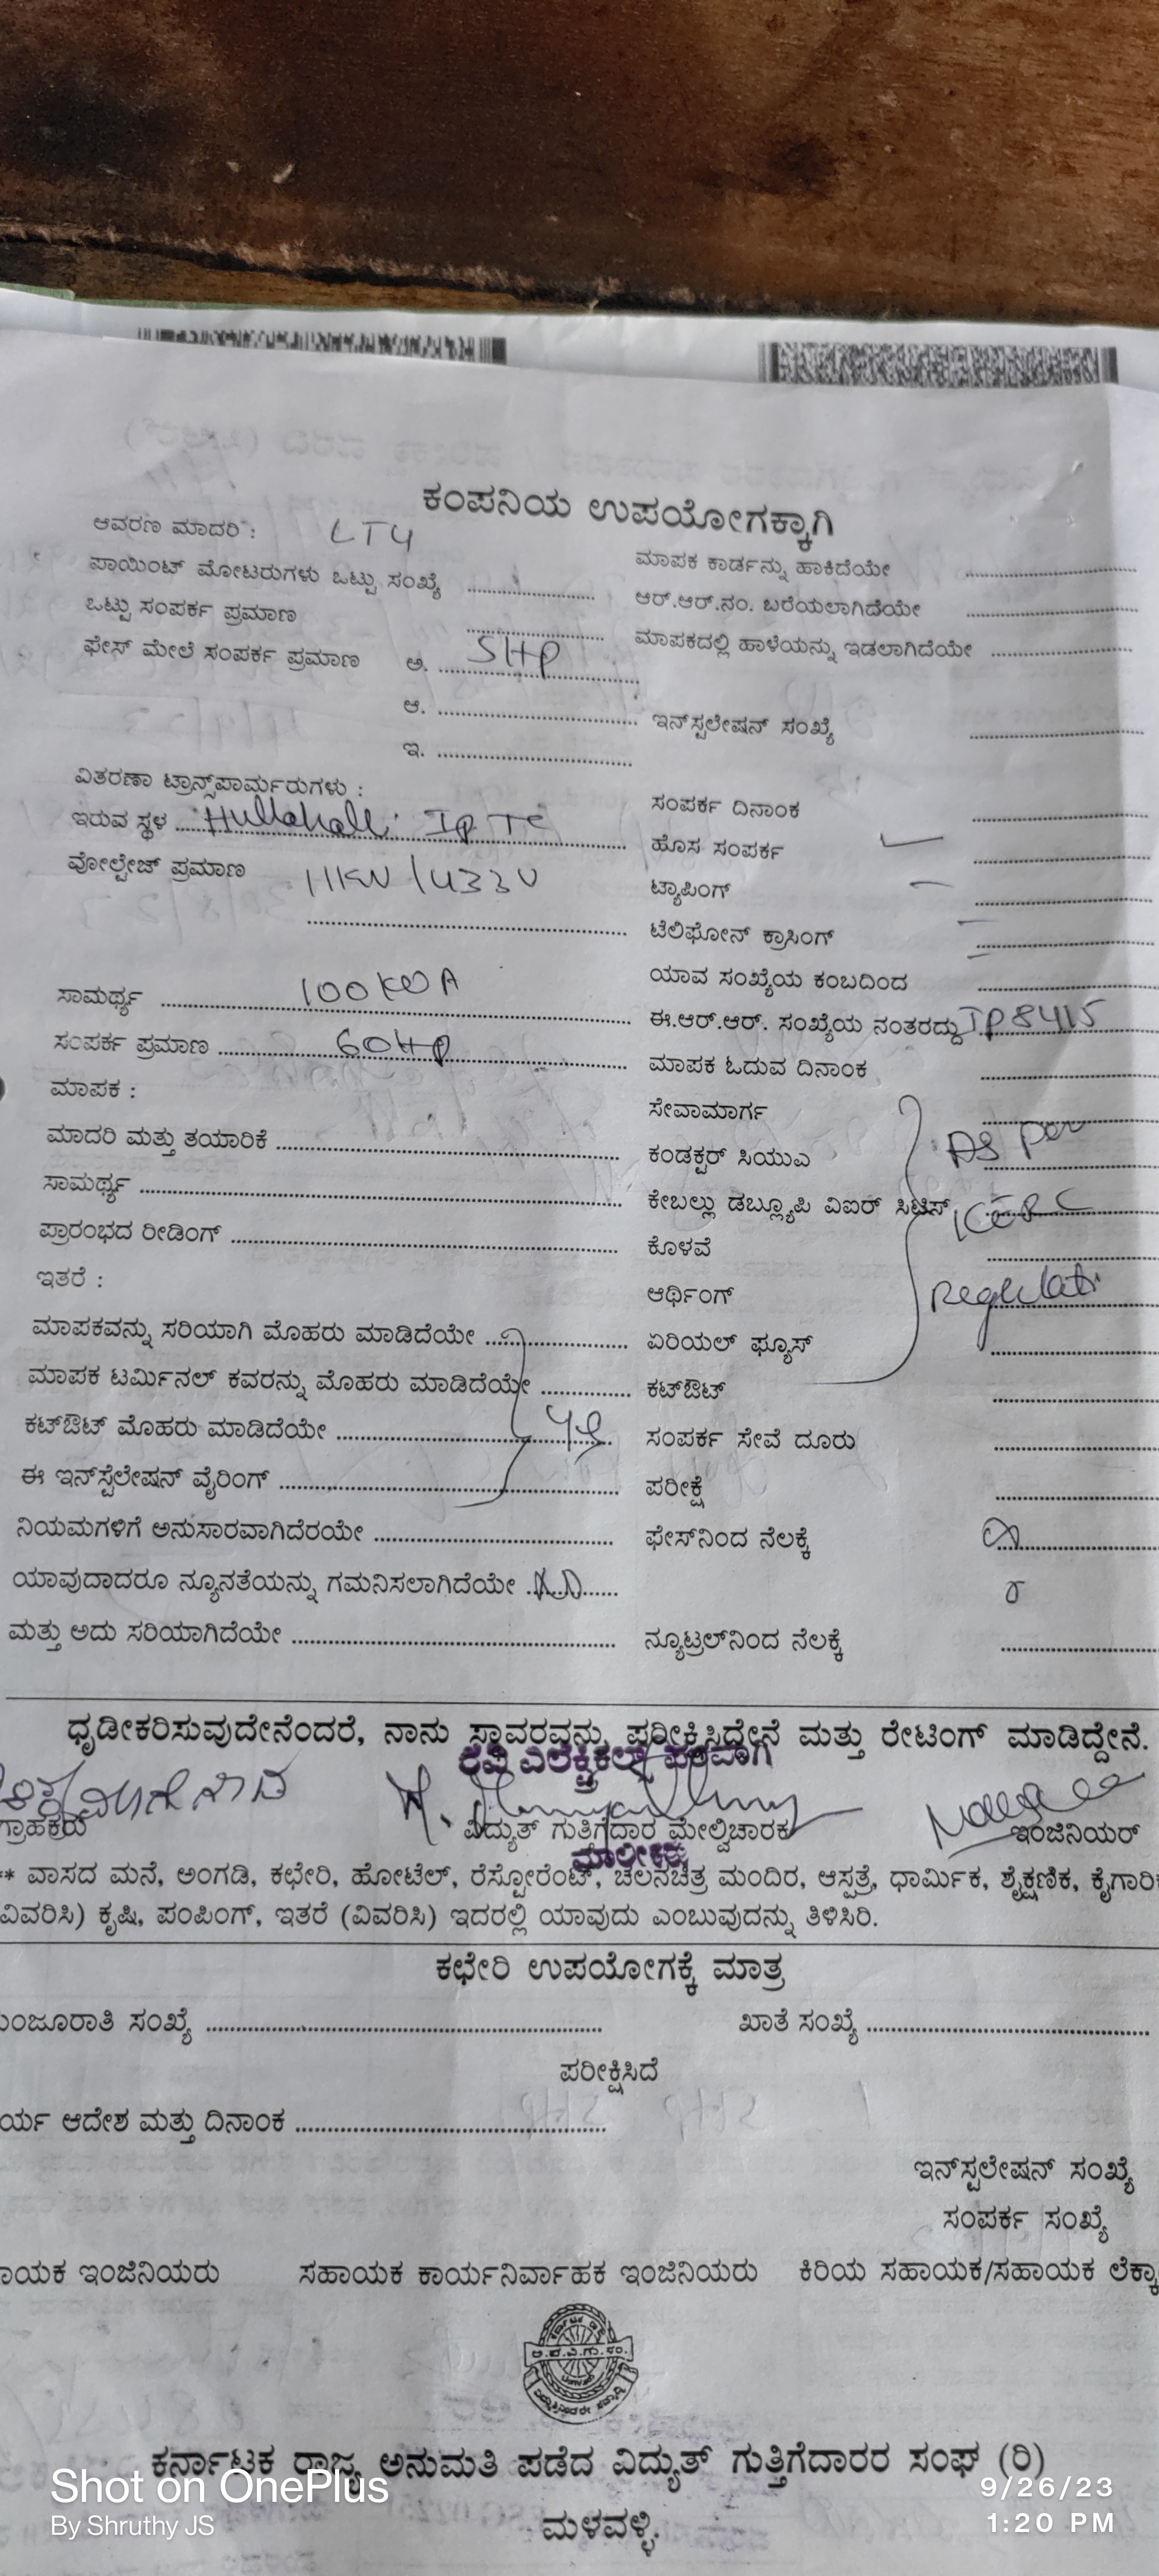 ಕಂಪನಿಯ ಉಪಯೋಗಕ್ಕಾಗಿ
ಆವರಣ ಮಾದರಿ : LT4
ಪಾಯಿಂಟ್ ಮೋಟರುಗಳು ಒಟ್ಟು ಸಂಖ್ಯೆ
ಒಟ್ಟು ಸಂಪರ್ಕ ಪ್ರಮಾಣ
ಫೇಸ್ ಮೇಲೆ ಸಂಪರ್ಕ ಪ್ರಮಾಣ ಅ. 5HP
ಆ.
ಇ.
ವಿತರಣಾ ಟ್ರಾನ್ಸ್‌ಪಾರ್ಮರುಗಳು :
ಇರುವ ಸ್ಥಳ Hullahalli IP TC
ವೋಲ್ಟೇಜ್ ಪ್ರಮಾಣ 11KV/433V
ಸಾಮರ್ಥ್ಯ 100KVA
ಸಂಪರ್ಕ ಪ್ರಮಾಣ 60HP
ಮಾಪಕ :
ಮಾದರಿ ಮತ್ತು ತಯಾರಿಕೆ
ಸಾಮರ್ಥ್ಯ
ಪ್ರಾರಂಭದ ರೀಡಿಂಗ್
ಇತರೆ :
ಮಾಪಕವನ್ನು ಸರಿಯಾಗಿ ಮೊಹರು ಮಾಡಿದೆಯೇ
ಮಾಪಕ ಟರ್ಮಿನಲ್ ಕವರನ್ನು ಮೊಹರು ಮಾಡಿದೆಯೇ
ಕಟ್‌ಔಟ್ ಮೊಹರು ಮಾಡಿದೆಯೇ
ಈ ಇನ್‌ಸ್ಟೆಲೇಷನ್ ವೈರಿಂಗ್
ನಿಯಮಗಳಿಗೆ ಅನುಸಾರವಾಗಿದೆರಯೇ
ಯಾವುದಾದರೂ ನ್ಯೂನತೆಯನ್ನು ಗಮನಿಸಲಾಗಿದೆಯೇ NO
ಮತ್ತು ಅದು ಸರಿಯಾಗಿದೆಯೇ
ಮಾಪಕ ಕಾರ್ಡನ್ನು ಹಾಕಿದೆಯೇ
ಆರ್.ಆರ್.ನಂ. ಬರೆಯಲಾಗಿದೆಯೇ
ಮಾಪಕದಲ್ಲಿ ಹಾಳೆಯನ್ನು ಇಡಲಾಗಿದೆಯೇ
ಇನ್‌ಸ್ಟಲೇಷನ್ ಸಂಖ್ಯೆ
ಸಂಪರ್ಕ ದಿನಾಂಕ
ಹೊಸ ಸಂಪರ್ಕ
ಟ್ಯಾಪಿಂಗ್
ಟೆಲಿಫೋನ್ ಕ್ರಾಸಿಂಗ್
ಯಾವ ಸಂಖ್ಯೆಯ ಕಂಬದಿಂದ
ಈ.ಆರ್.ಆರ್. ಸಂಖ್ಯೆಯ ನಂತರದ್ದು IP8415
ಮಾಪಕ ಓದುವ ದಿನಾಂಕ
ಸೇವಾಮಾರ್ಗ
ಕಂಡಕ್ಟರ್ ಸಿಯುಎ As per
ಕೇಬಲ್ಲು ಡಬ್ಲ್ಯೂಪಿ ವಿಐರ್ ಸಿಟಿಸ್
ಕೊಳವೆ
ಆರ್ಥಿಂಗ್
ಏರಿಯಲ್ ಫ್ಯೂಸ್
ಕಟ್‌ಔಟ್
ಸಂಪರ್ಕ ಸೇವೆ ದೂರು
ಪರೀಕ್ಷೆ
ಫೇಸ್‌ನಿಂದ ನೆಲಕ್ಕೆ
ನ್ಯೂಟ್ರಲ್‌ನಿಂದ ನೆಲಕ್ಕೆ
ಧೃಡೀಕರಿಸುವುದೇನೆಂದರೆ, ನಾನು ಸ್ಥಾವರವನ್ನು ಪರೀಕ್ಷಿಸಿದ್ದೇನೆ ಮತ್ತು ರೇಟಿಂಗ್ ಮಾಡಿದ್ದೇನೆ.
ರವಿ ಎಲೆಕ್ಟ್ರಿಕಲ್ಸ್ ಪರವಾಗಿ
ಗ್ರಾಹಕರು ವಿದ್ಯುತ್ ಗುತ್ತಿಗೆದಾರ ಮೇಲ್ವಿಚಾರಕ ಇಂಜಿನಿಯರ್
ಮಾಲೀಕರು
** ವಾಸದ ಮನೆ, ಅಂಗಡಿ, ಕಛೇರಿ, ಹೋಟೆಲ್, ರೆಸ್ಟೋರೆಂಟ್, ಚಲನಚಿತ್ರ ಮಂದಿರ, ಆಸ್ಪತ್ರೆ, ಧಾರ್ಮಿಕ, ಶೈಕ್ಷಣಿಕ, ಕೈಗಾರಿಕ
ವಿವರಿಸಿ) ಕೃಷಿ, ಪಂಪಿಂಗ್, ಇತರೆ (ವಿವರಿಸಿ) ಇದರಲ್ಲಿ ಯಾವುದು ಎಂಬುವುದನ್ನು ತಿಳಿಸಿರಿ.
ಕಛೇರಿ ಉಪಯೋಗಕ್ಕೆ ಮಾತ್ರ
ಮಂಜೂರಾತಿ ಸಂಖ್ಯೆ ಖಾತೆ ಸಂಖ್ಯೆ
ಪರೀಕ್ಷಿಸಿದೆ
ರ್ಯ ಆದೇಶ ಮತ್ತು ದಿನಾಂಕ
ಇನ್‌ಸ್ಟಲೇಷನ್ ಸಂಖ್ಯೆ
ಸಂಪರ್ಕ ಸಂಖ್ಯೆ
ಾಯಕ ಇಂಜಿನಿಯರು ಸಹಾಯಕ ಕಾರ್ಯನಿರ್ವಾಹಕ ಇಂಜಿನಿಯರು ಕಿರಿಯ ಸಹಾಯಕ/ಸಹಾಯಕ ಲೆಕ್ಕಾ
ಕರ್ನಾಟಕ ರಾಜ್ಯ ಅನುಮತಿ ಪಡೆದ ವಿದ್ಯುತ್ ಗುತ್ತಿಗೆದಾರರ ಸಂಘ (ರಿ)
ಮಳವಳ್ಳಿ.
Shot on OnePlus
By Shruthy JS
9/26/23
1:20 PM